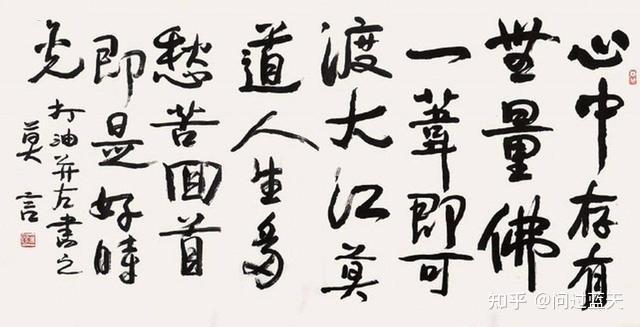 心中存有
無量佛
一葦即可
渡大江莫
道人生多
愁苦回首
即是好時
光
打油并左書之
莫言
知乎 @问过蓝天